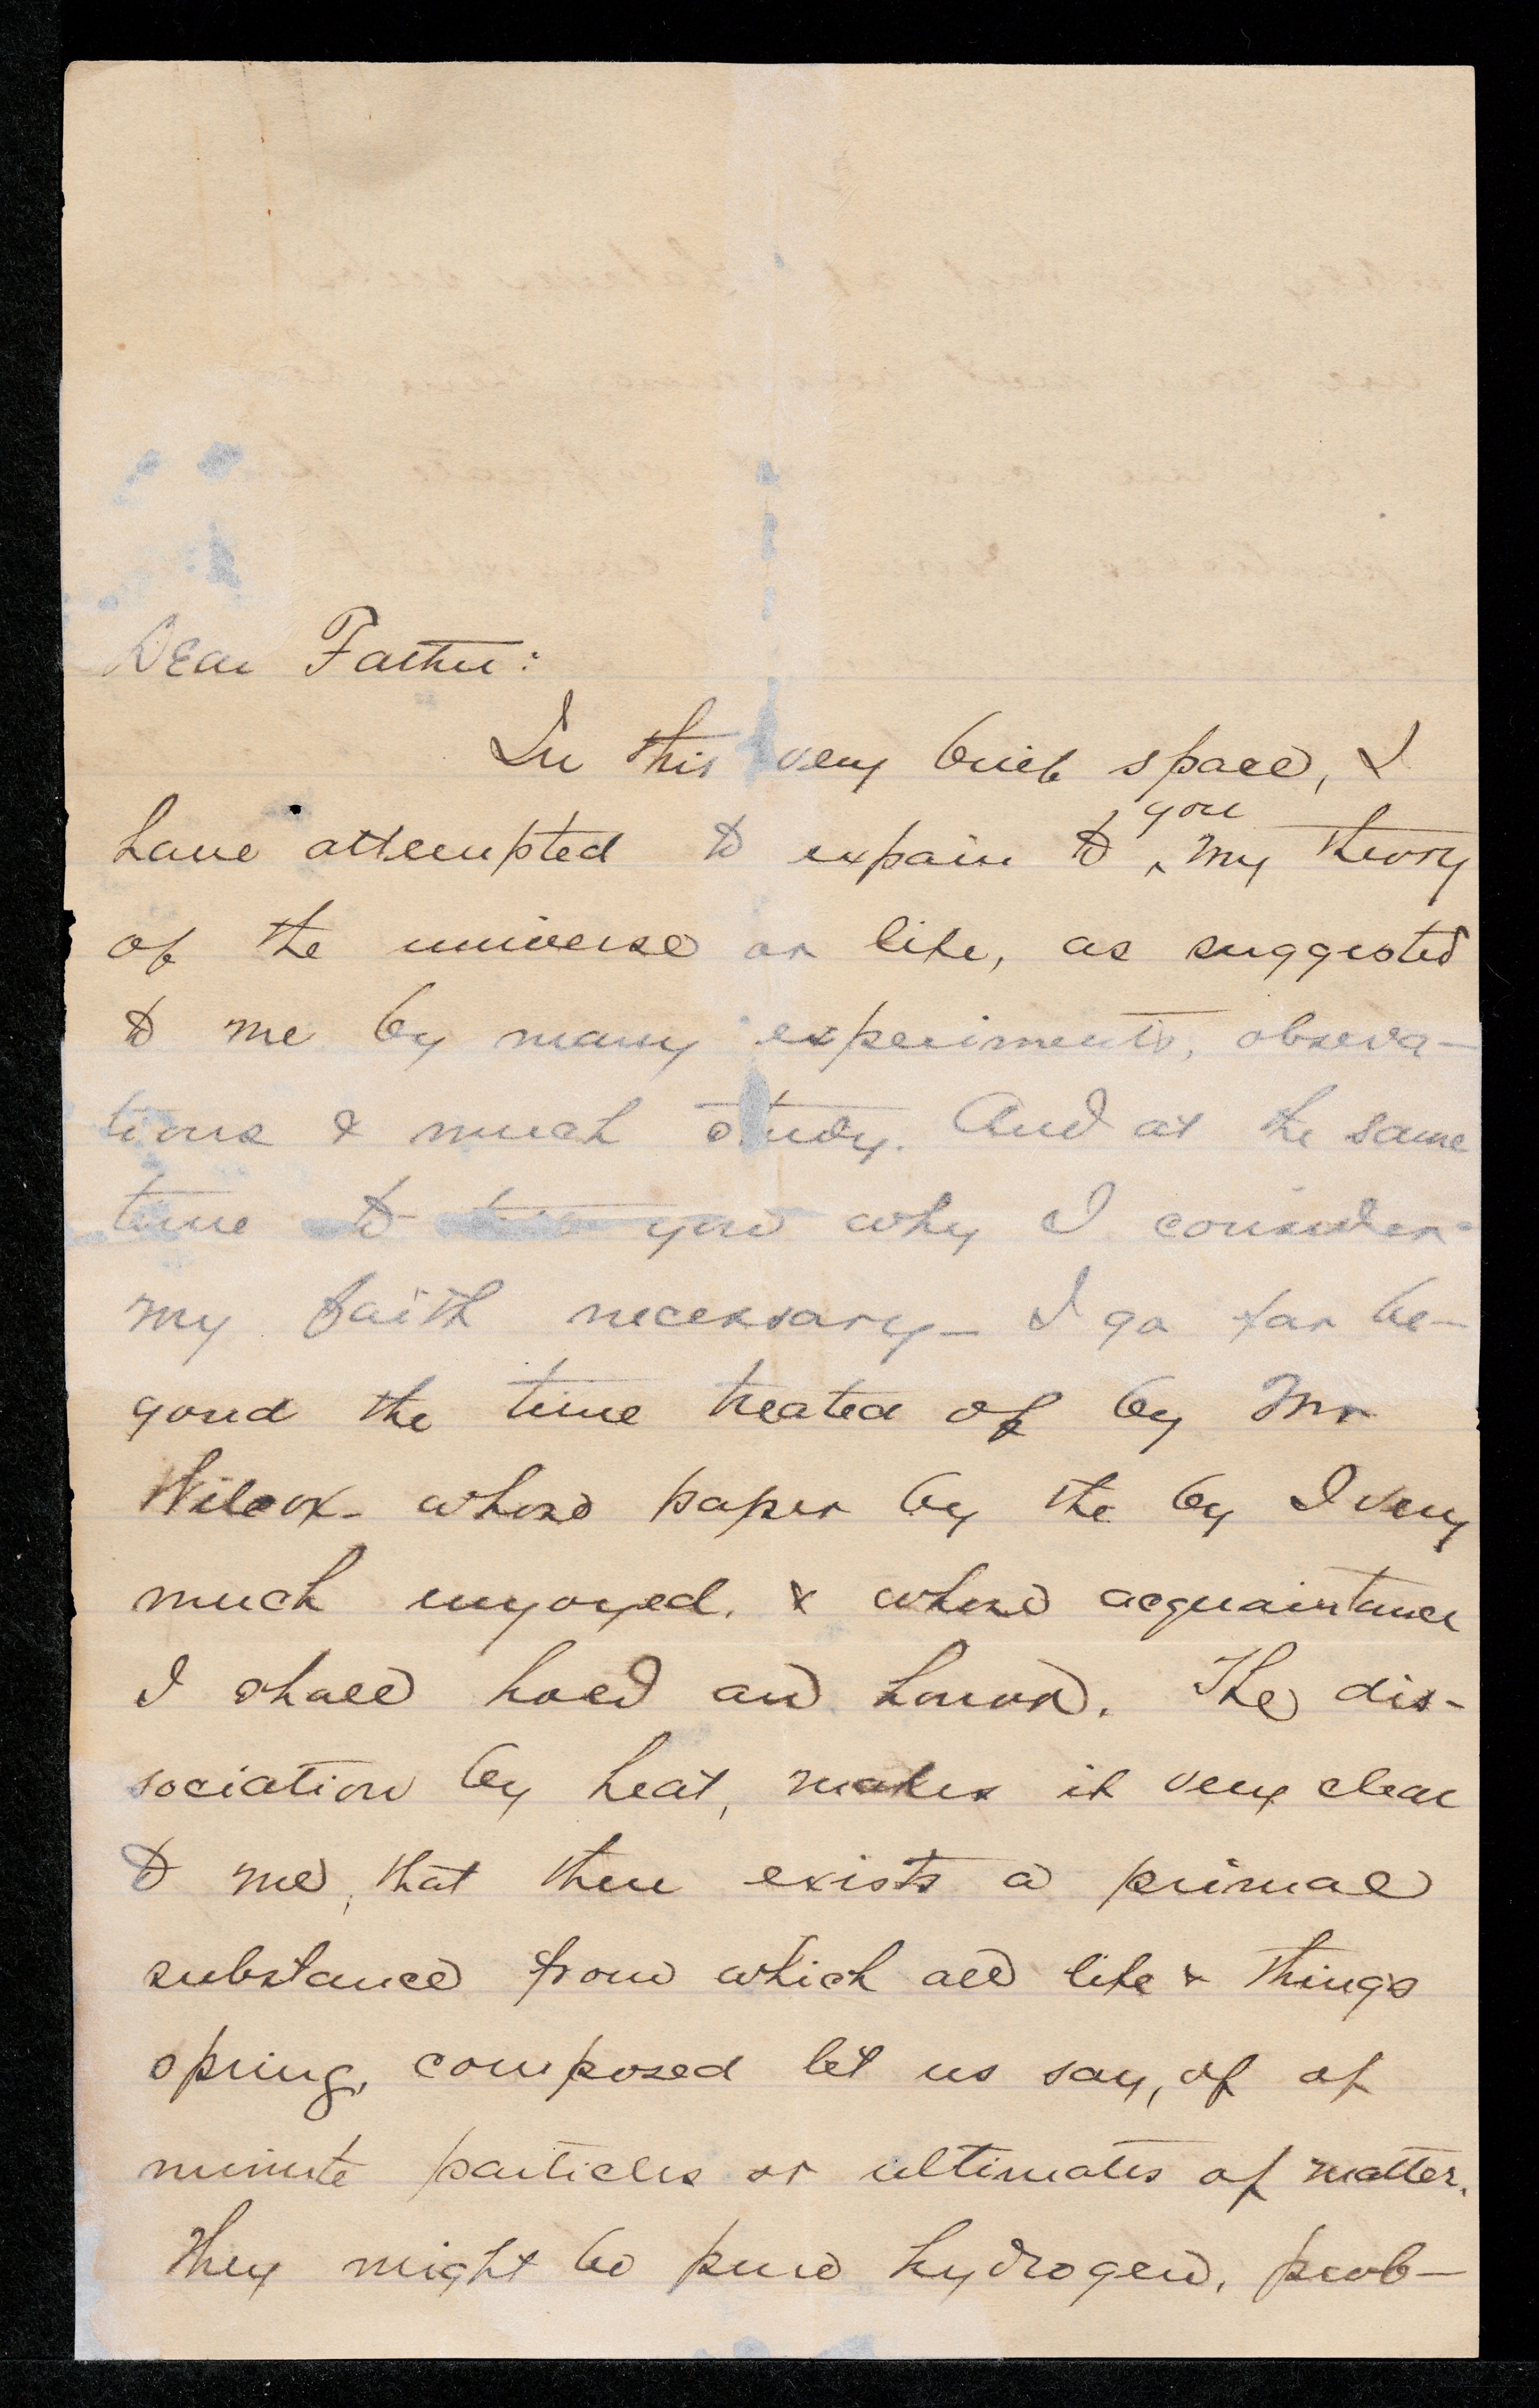 Dear Father:
In this very brief space, I
have attempted to expain to you my theory
of the universe or life, as suggested
to me by many experiments, observa-
tions & much study. And at the same
time to you why I consider
my faith necessary_ I go far be-
yond the time treated of by Mr
Wilcox_ whose paper by the by I very
much enjoyed, & whose acquaintance
I shall hold an honor. The dis-
sociation by heat, makes it very clear
to me, that there exists a primal
substance from which all life & things
spring, composed let us say, of of
minute particles or ultimates of matter.
They might be pure hydrogen, prob-